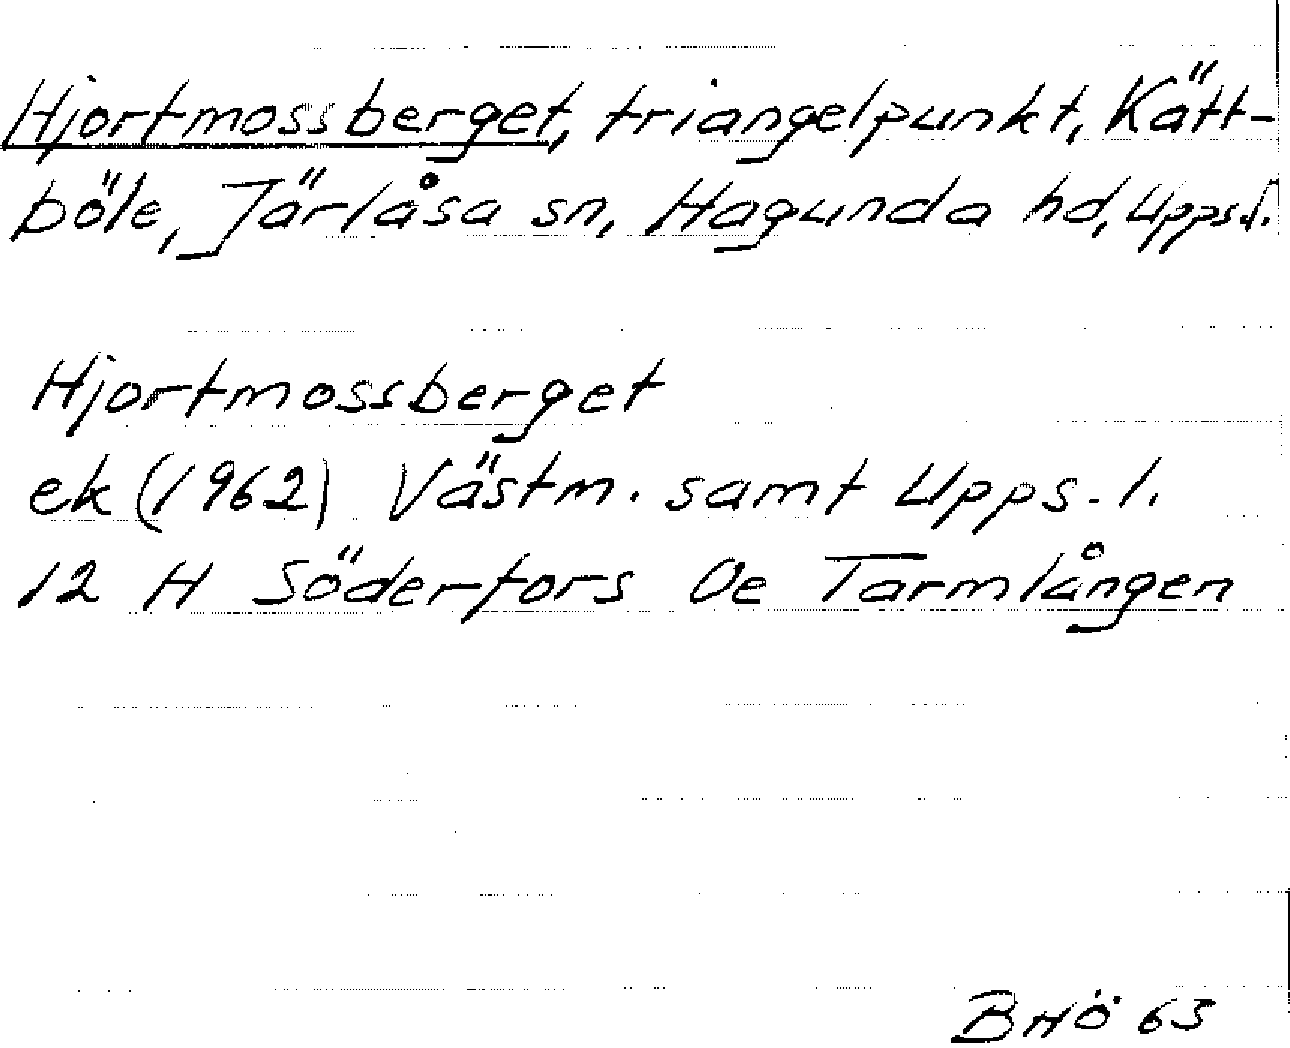 Hjortmossberget, triangelpunkt, Kätt-
böle, Järlåsa sn, Hagunda hd, Upps.l.
Hjortmossberget
ek (1962) Västm. samt Upps. l.
12 H Söderfors 0e Tarmlången
BHÖ 63